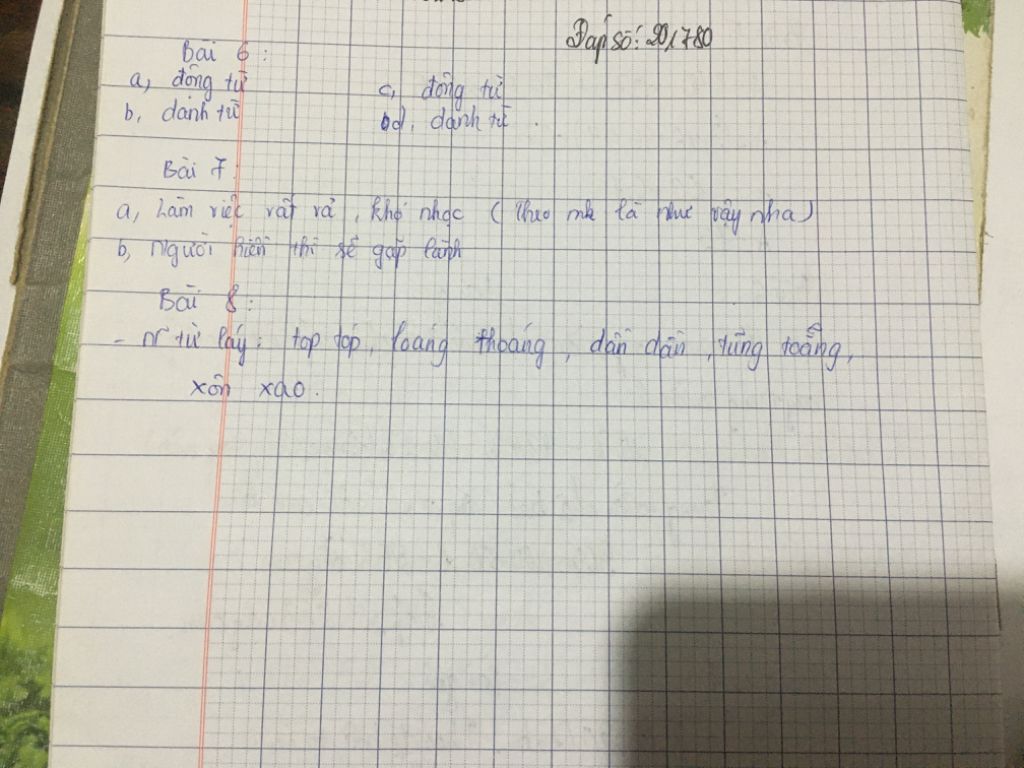 Đáp số: 20,780
Bài 6 :
a, động từ
c, động từ
b, danh từ
d, danh từ .
Bài 7 :
a, Làm việc vất vả, khó nhọc ( theo mk là như vậy nha )
b, Người hiền thì sẽ gặp lành
Bài 8 :
- từ láy : top tóp, loang thoáng, dần dần,
xôn xao .